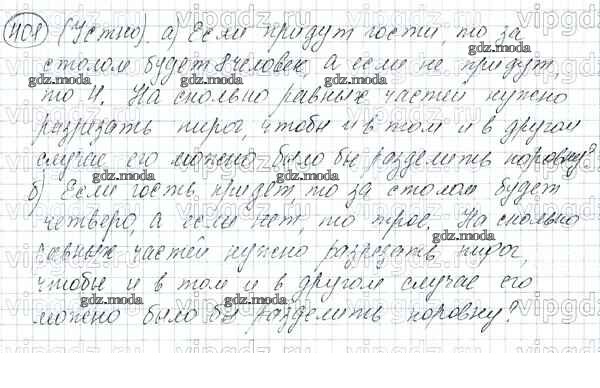 408 (Устно). а) Если придут гости, то за
столом будет 8 человек, а если не придут,
то 4. На сколько равных частей нужно
разрезать пирог, чтобы и в том и в другом
случае его можно было бы разделить поровну?
б) Если гость придет, то за столом будет
четверо, а если нет, то трое. На сколько
равных частей нужно разрезать пирог,
чтобы и в том и в другом случае его
можно было бы разделить поровну?